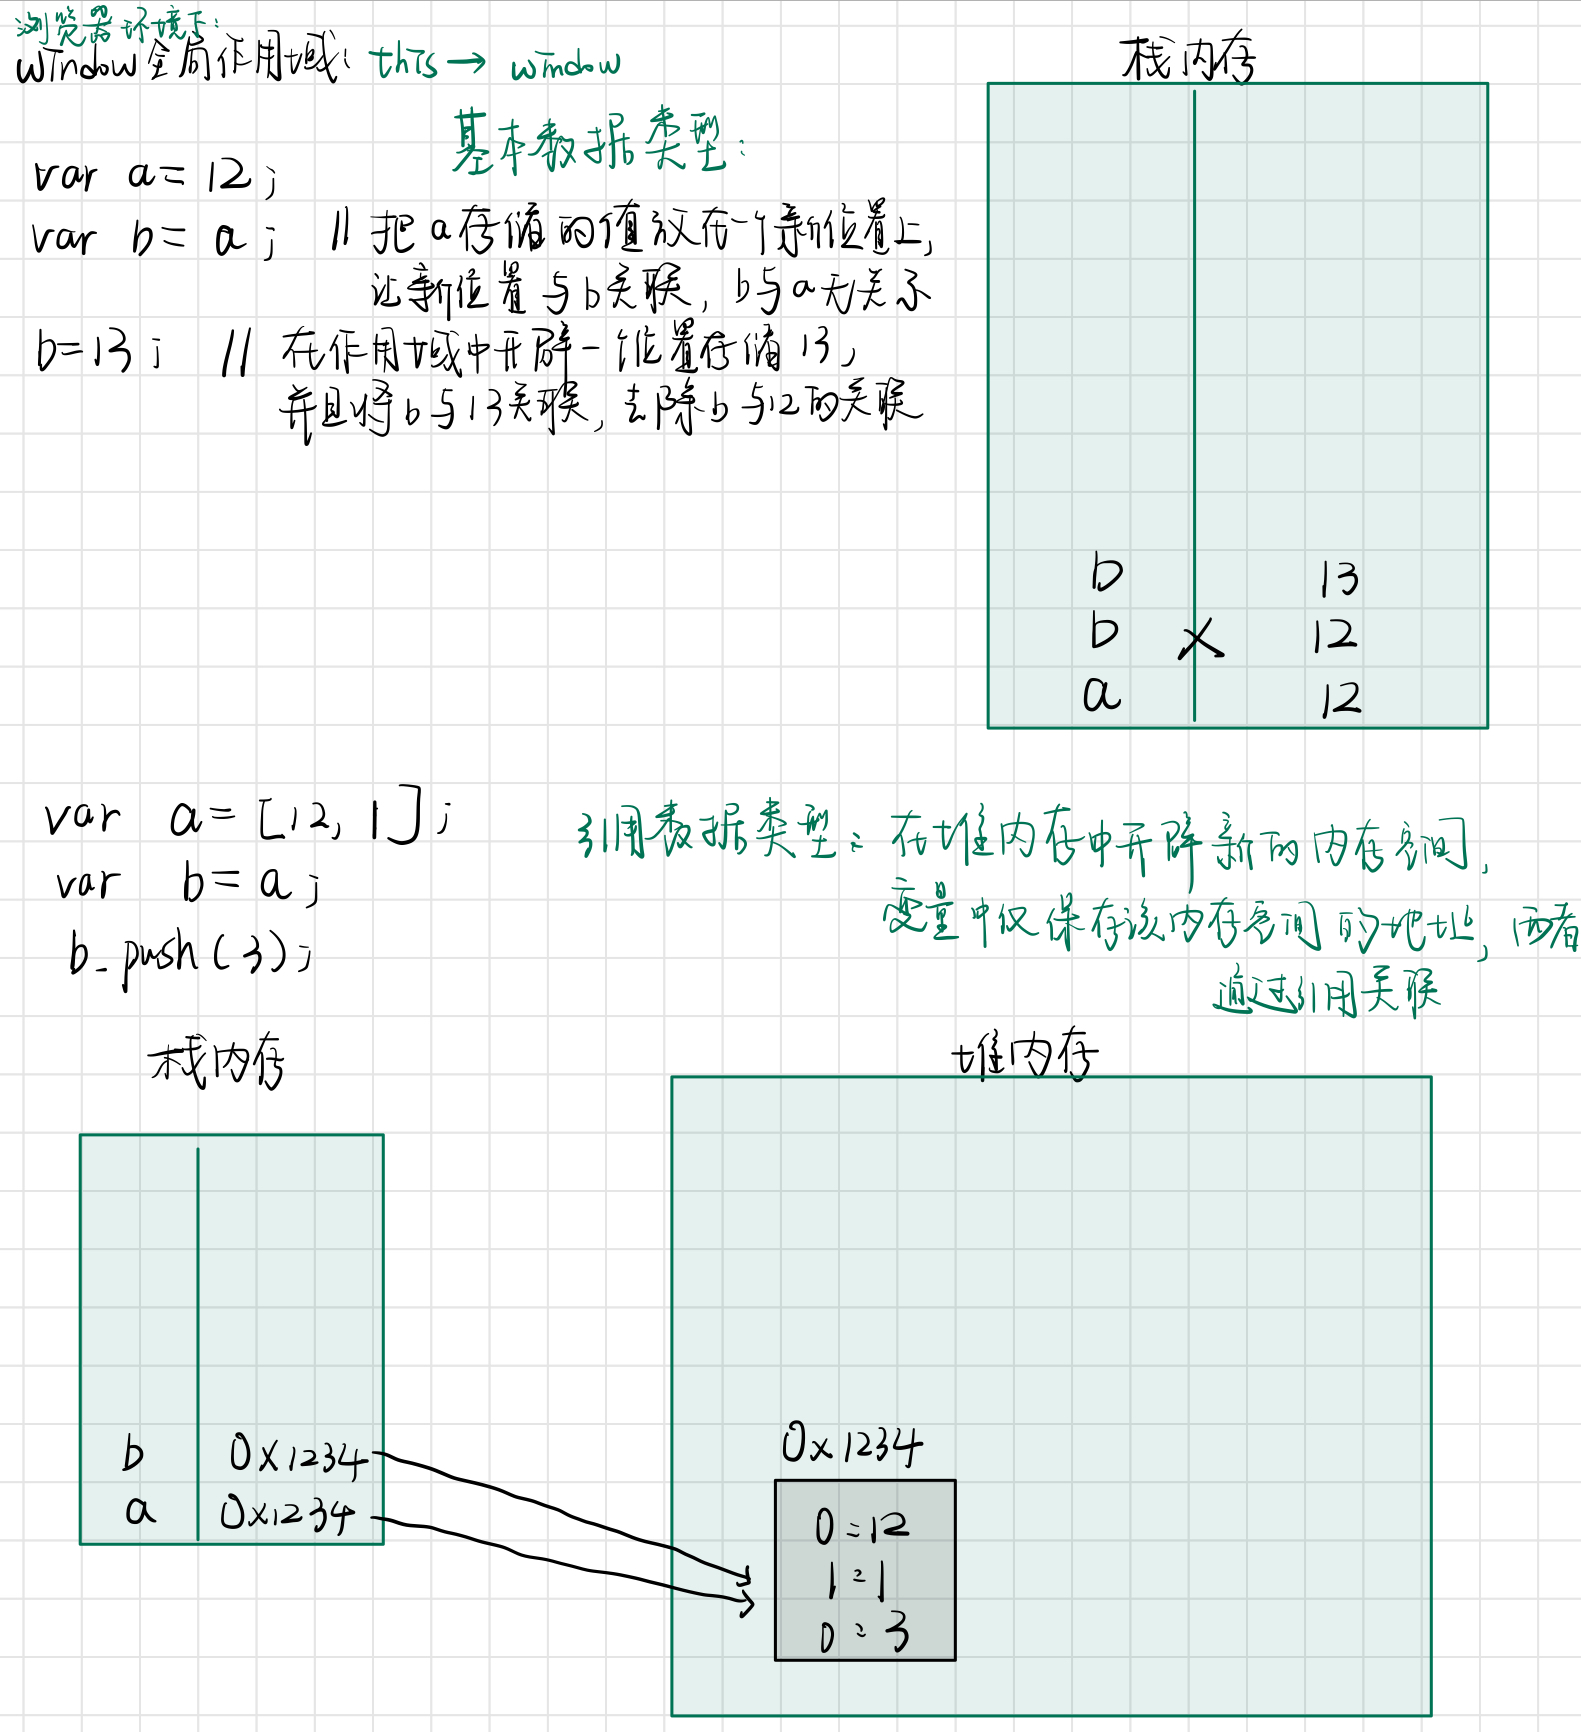 浏览器环境下:
window全局作用域: this → window
基本数据类型:
var a = 12;
var b = a; // 把a存储的值放在一个新位置上,
让新位置与b关联, b与a无关系
b=13; // 在作用域中开辟一个位置存储13,
并且将b与13关联, 去除b与12的关联
栈内存
b 13
b x 12
a 12
var a = [12, 1];
var b = a;
b.push(3);
引用数据类型: 在堆内存中开辟新的内存空间,
变量中仅保存该内存空间的地址, 两者
通过引用关联
栈内存
b 0x1234
a 0x1234
堆内存
0x1234
0:12
1:1
0:3